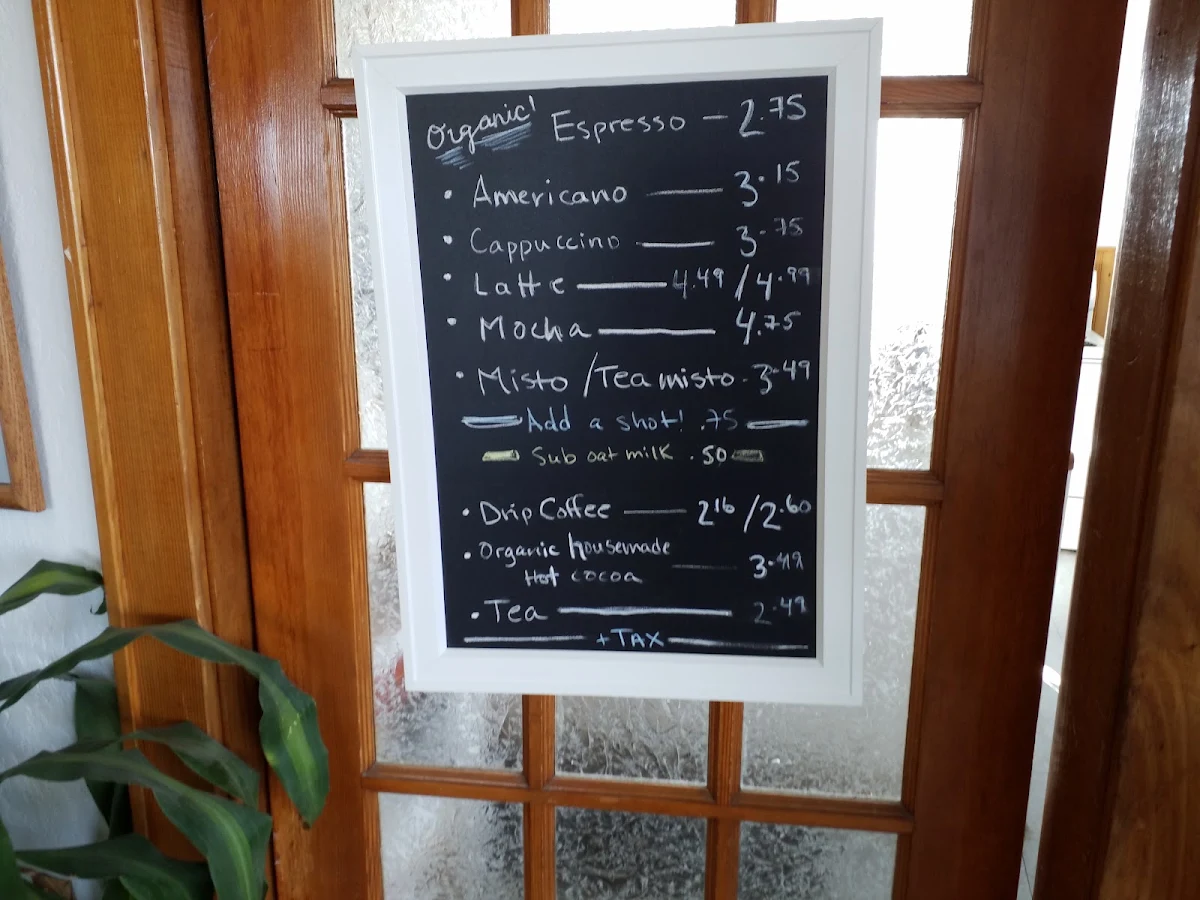 Organic! Espresso — 2.75
• Americano — 3.15
• Cappuccino — 3.75
• Latte — 4.49 / 4.99
• Mocha — 4.75
• Misto / Tea misto. 3.49
Add a shot! .75
Sub oat milk .50
• Drip Coffee — 2.16 / 2.60
• Organic housemade
Hot cocoa — 3.49
• Tea — 2.49
+ TAX